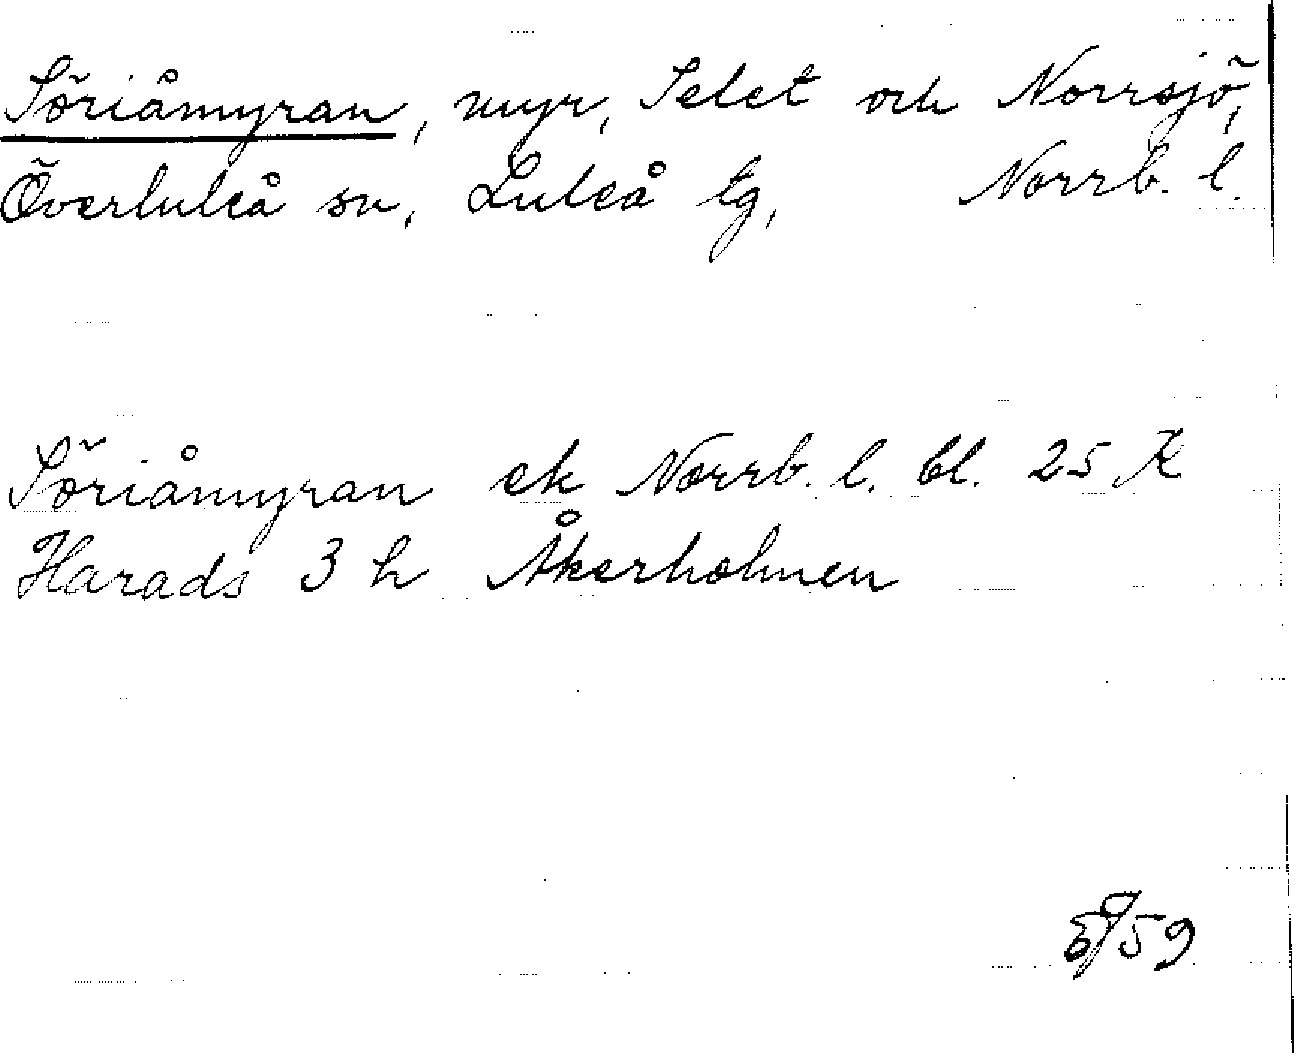 Söriåmyran, myr, Selet och Norrsjö,
Överluleå sn, Luleå tg, Norrb. l.
Söriåmyran ek Norrb. l. bl. 25 K
Harads 3 h Åkerholmen
59